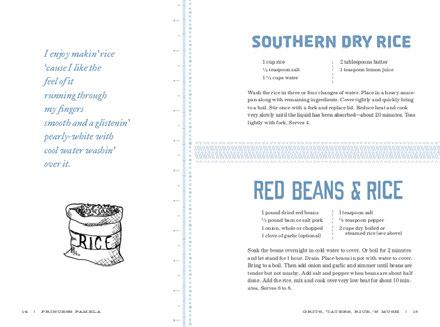 I enjoy makin' rice
'cause I like the
feel of it
running through
my fingers
smooth and a glistenin'
pearly-white with
cool water washin'
over it.
RICE
14 | PRINCESS PAMELA
SOUTHERN DRY RICE
1 cup rice
½ teaspoon salt
1½ cups water
2 tablespoons butter
1 teaspoon lemon juice
Wash the rice in three or four changes of water. Place in a heavy sauce-
pan along with remaining ingredients. Cover tightly and quickly bring
to a boil. Stir once with a fork and replace lid. Reduce heat and cook
very slowly until the liquid has been absorbed—about 20 minutes. Toss
lightly with fork. Serves 4.
RED BEANS & RICE
1 pound dried red beans
½ pound ham or salt pork
1 onion, whole or chopped
1 clove of garlic (optional)
1 teaspoon salt
½ teaspoon pepper
2 cups dry boiled or
steamed rice (see above)
Soak the beans overnight in cold water to cover. Or boil for 2 minutes
and let stand for 1 hour. Drain. Place beans in pot with water to cover.
Bring to a boil. Then add onion and garlic and simmer until beans are
tender but not mushy. Add salt and pepper when beans are about half
done. Add the rice, mix and cook over very low heat for about 10 min-
utes. Serves 6 to 8.
GRITS, 'TATERS, RICE, 'N MUSH | 15